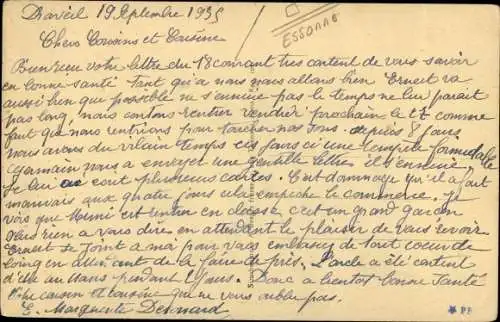 Draveil 19 Septembre 1935
ESSONNE
Chers Cousins et Cousine
Bien reçu votre lettre du 18 courant tres contant de vous savoir
en bonne santé tant qu'a nous nous allons bien Ernest va
aussi bien que possible ne s'ennuie pas le temps ne lui parait
pas long, nous contons rentrer vendredi prochain le 27 comme
faut que nous rentrions pour toucher nos sous. depuis 8 jours
nous avons du vilain temps ces jours ci une tempete formidable
Germain nous a envoyer une gentille lettre il s'ennuie
je lui ai écrit plusieurs cartes C'est dommage qu'il a fait
mauvais aux quatre jours cela empeche le commerce. je
vois que Mimi est rentrer en classe c'est un grand garçon
plus rien a vous dire en attendant le plaisir de vous revoir
Ernest se joint a moi pour vous embrasser de tout coeur de
loing en attendant de la faire de près. L'oncle a été contant
d'etre au pendant jours. Donc a bientot bonne Santé
Votre cousin et cousine qui ne vous oublie pas.
E. Marguerite